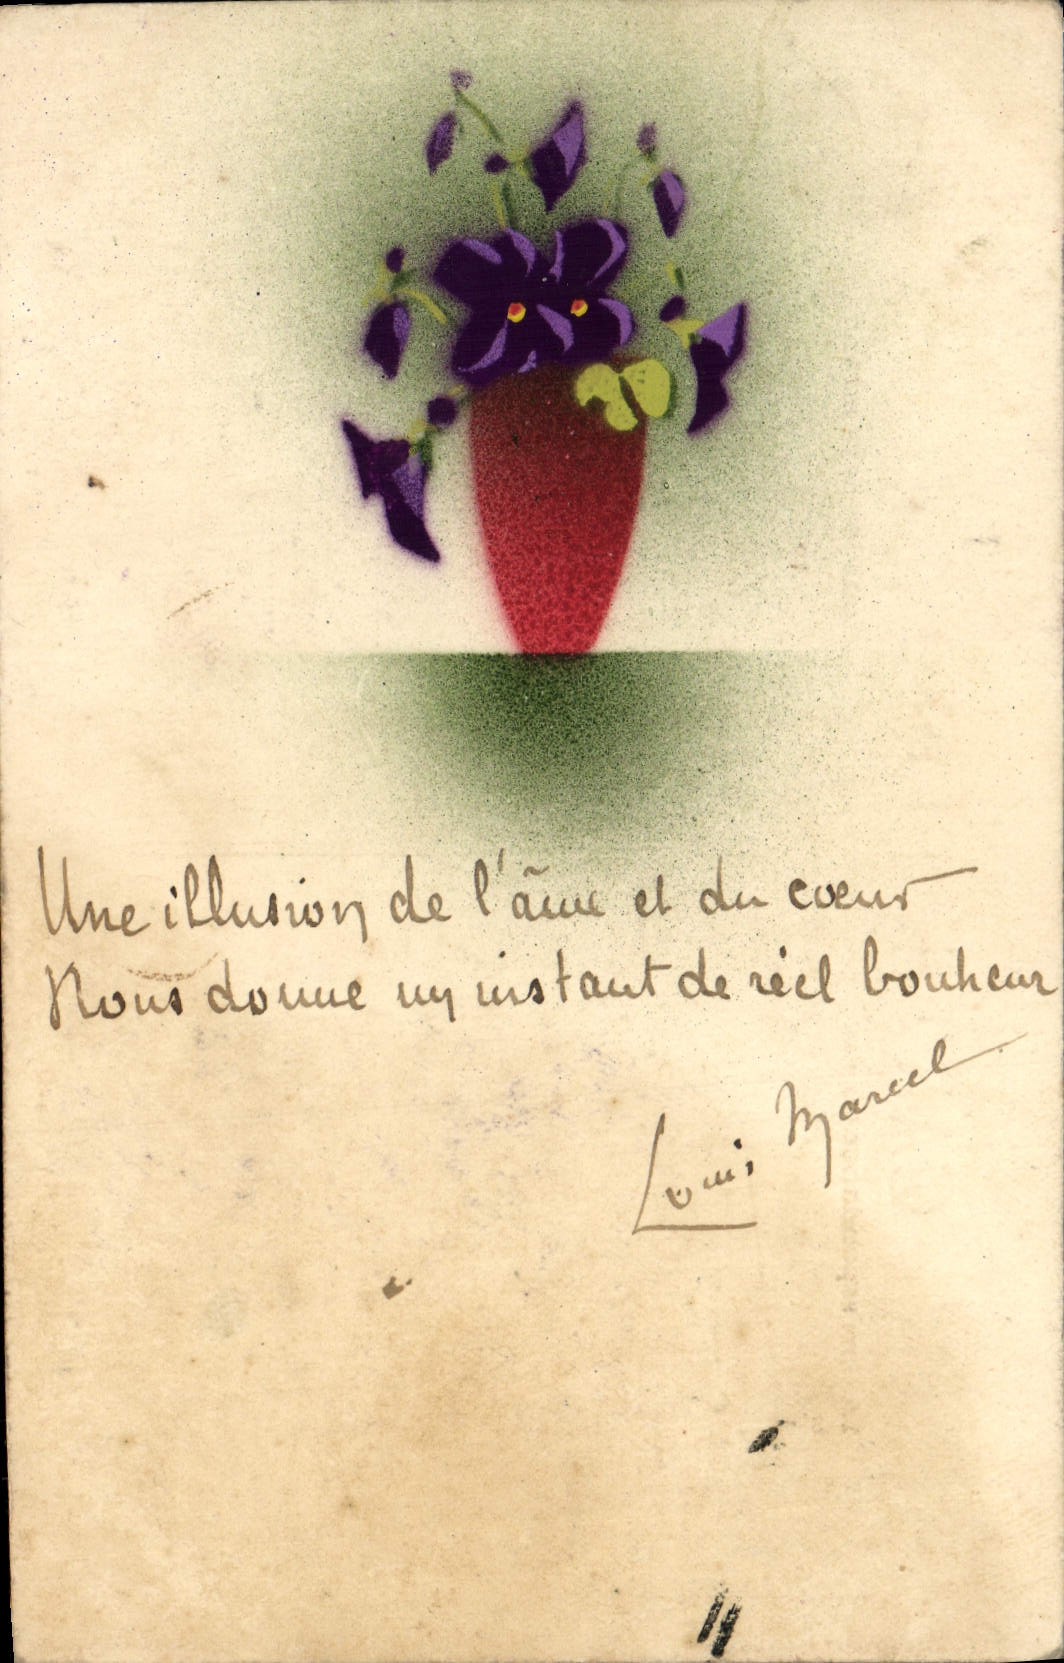 Une illusion de l'âme et du cœur
Nous donne un instant de réel bonheur
Louis Marcel